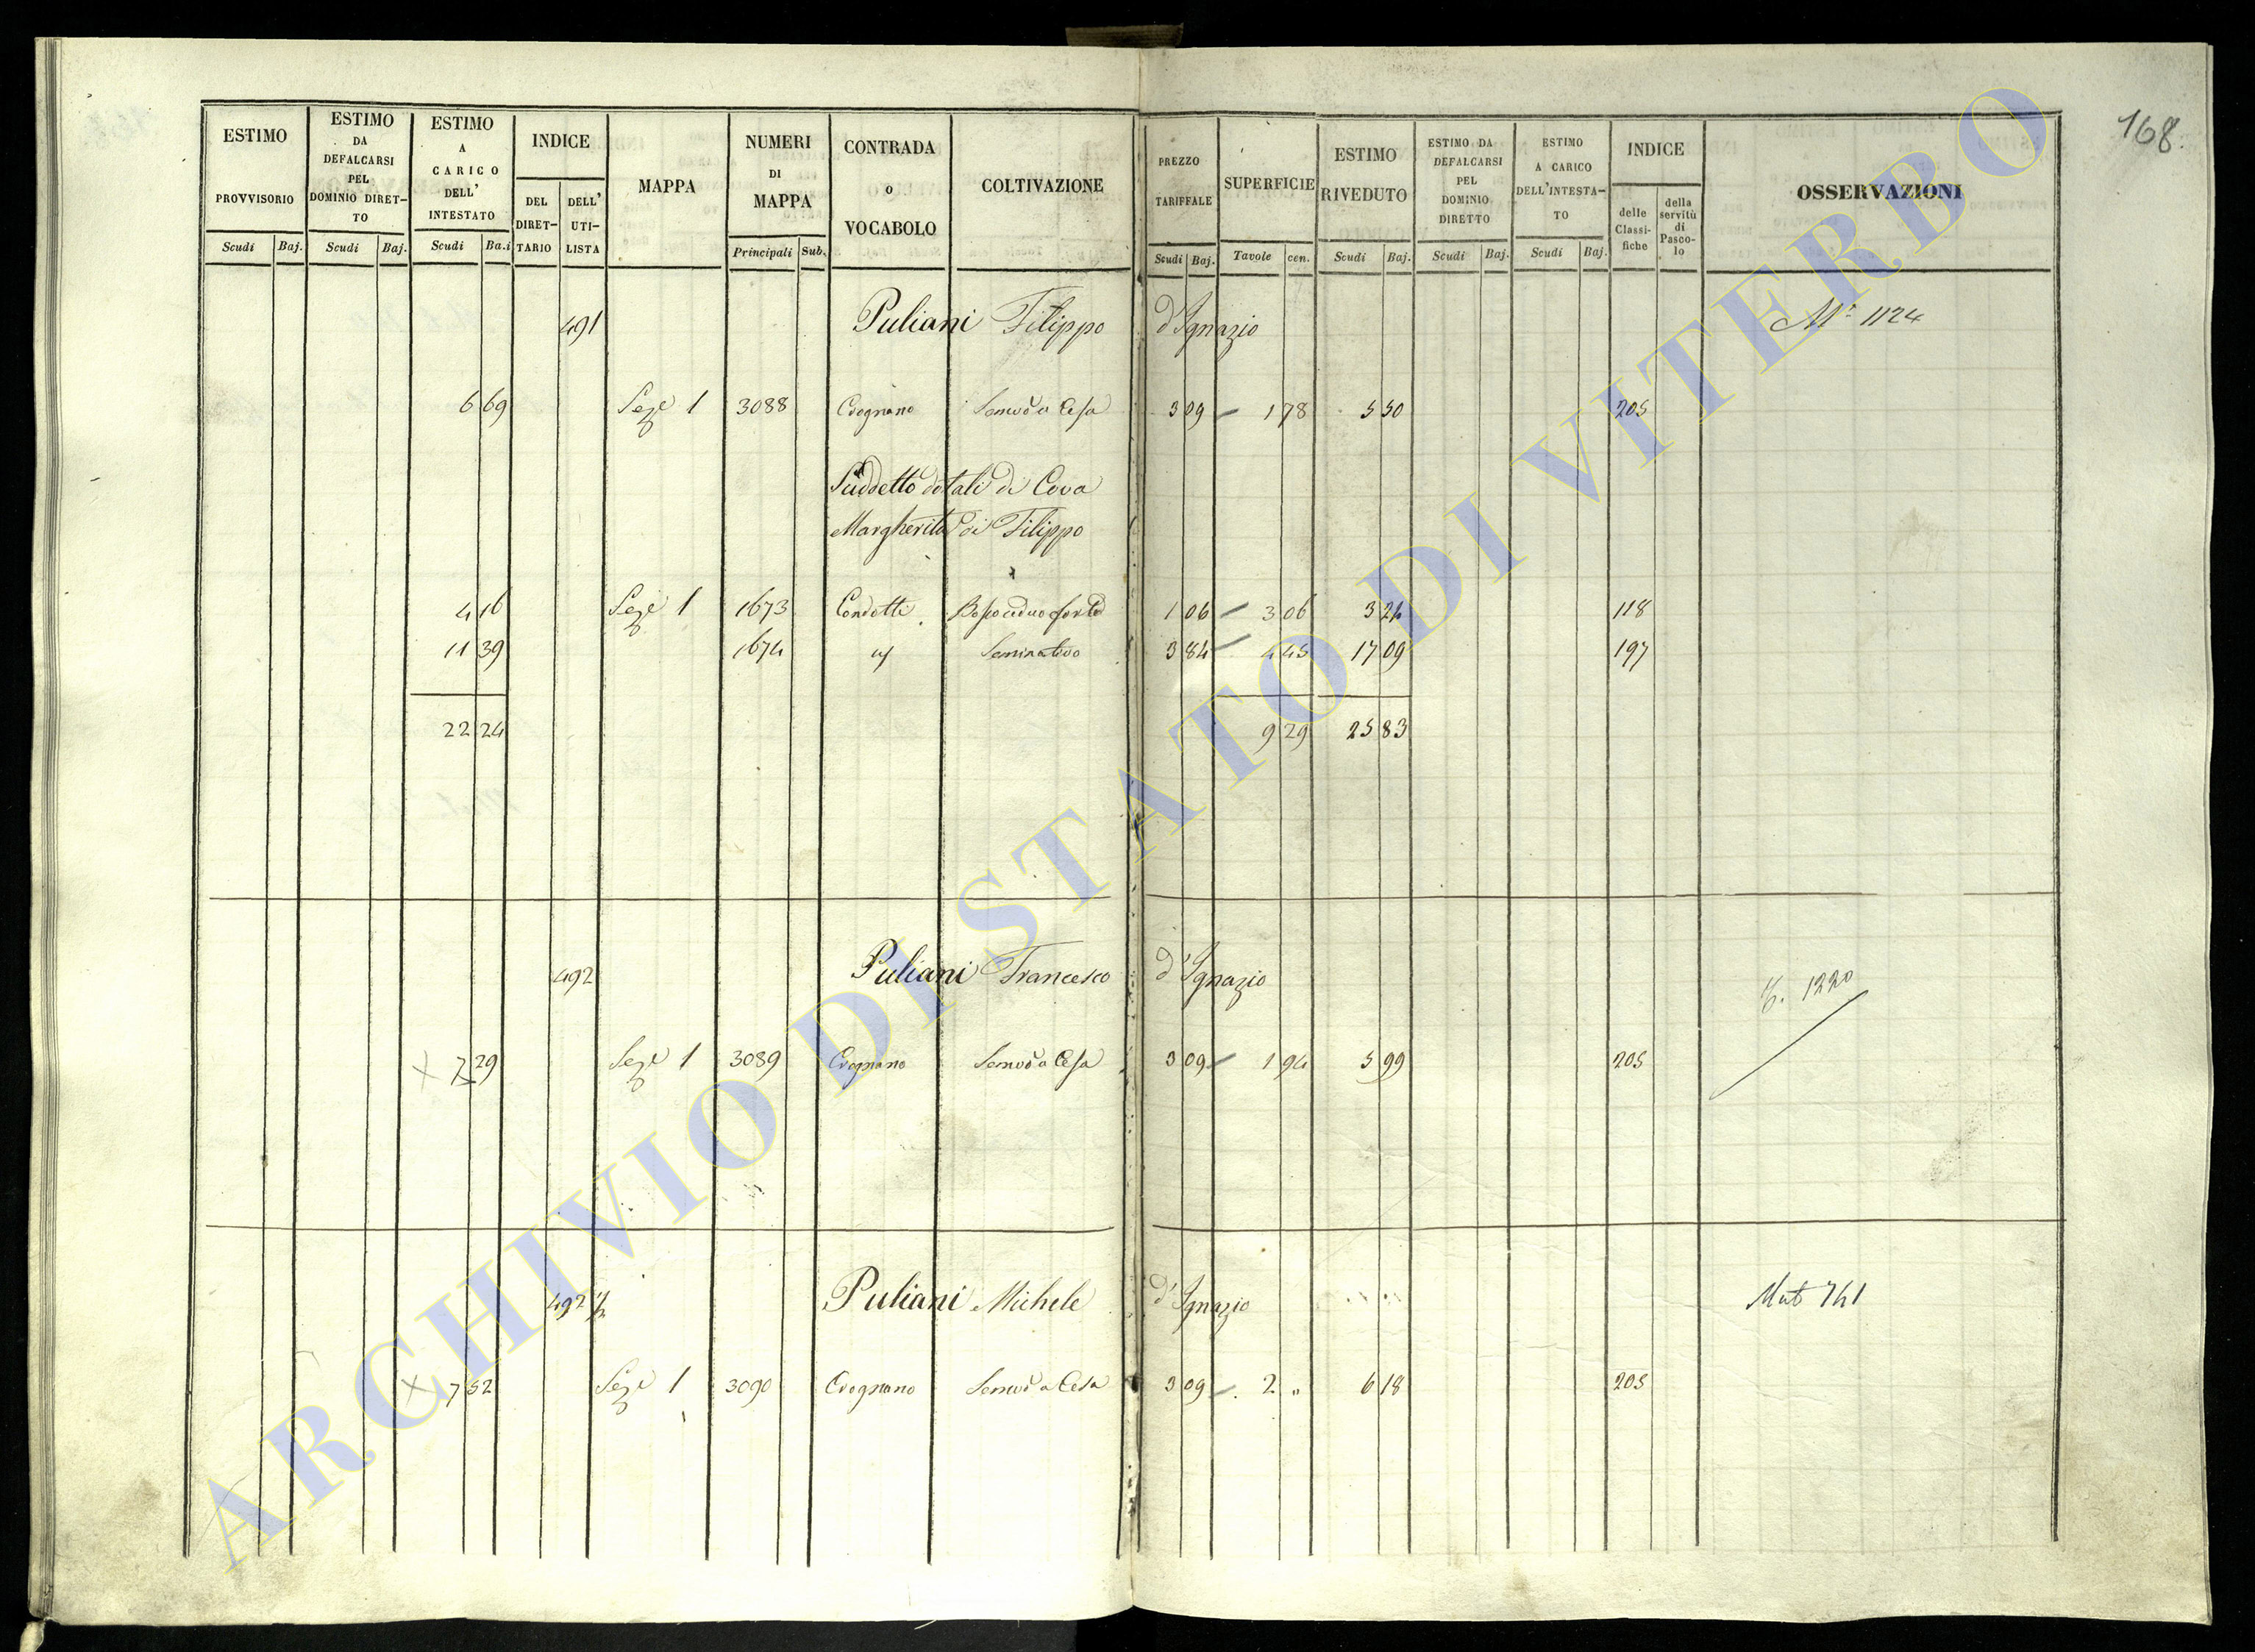 168.
ESTIMO PROVVISORIO
ESTIMO DA DEFALCARSI PEL DOMINIO DIRETTO
ESTIMO A CARICO DELL' INTESTATO
INDICE
DEL DIRETTARIO
DELL' UTILISTA
MAPPA
NUMERI DI MAPPA
CONTRADA O VOCABOLO
COLTIVAZIONE
PREZZO TARIFFALE
SUPERFICIE
ESTIMO RIVEDUTO
ESTIMO DA DEFALCARSI PEL DOMINIO DIRETTO
ESTIMO A CARICO DELL'INTESTATO
INDICE
delle Classifiche
della servitù di Pascolo
OSSERVAZIONI
Scudi Baj. Scudi Baj. Scudi Ba.i Principali Sub. Scudi Baj. Tavole cen. Scudi Baj. Scudi Baj. Scudi Baj.
491 Puliani Filippo d'Ignazio 1124
6 69 Seze 1 3088 3 09 1 78 5 50 205
Suddetto dotali di Cova
Margherita di Filippo
4 16 Seze 1 1673 Condotti 1 06 3 06 3 24 118
11 39 1674 Seminativo 3 84 4 45 17 09 197
22 24 9 29 25 83
492 Puliani Francesco d'Ignazio 1220
7 29 Seze 1 3089 3 09 1 94 5 99 205
492 1/2 Puliani Michele d'Ignazio Mut 741
7 52 Seze 1 3090 3 09 2 " 6 18 205
ARCHIVIO DI STATO DI VITERBO